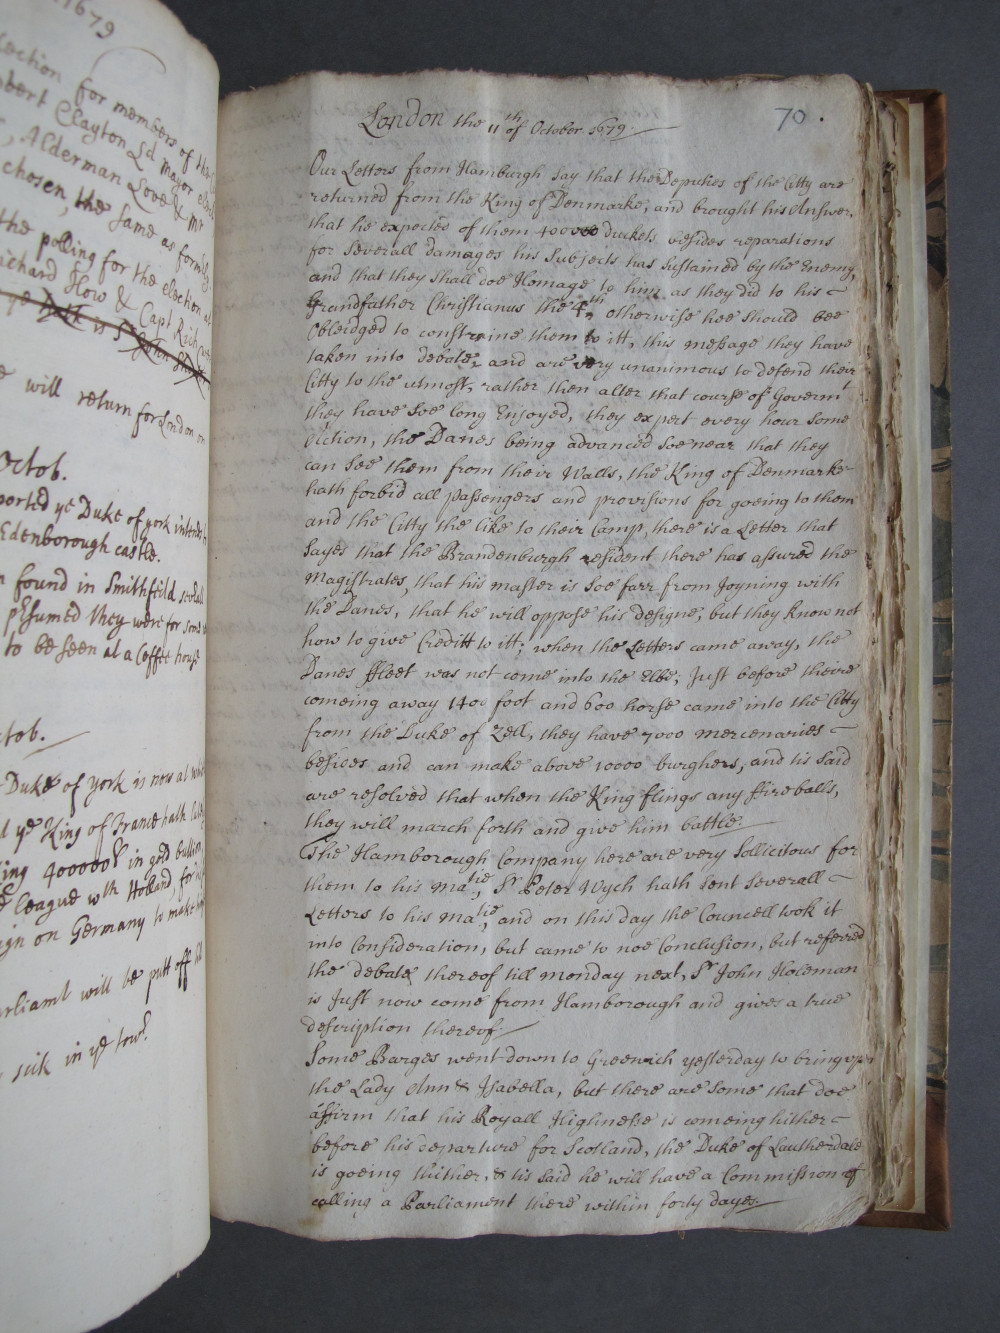 1679
ection for members of the
bert Clayton Ld Mayor
Alderman Love & Mr
chosen, the same as formrly
the polling for the election at
ichard How & Capt Rich
will return for London on
Octob.
ported ye Duke of york intends
Edenborough castle.
found in Smithfeild severall
psumed they were for some
to be seen at a Coffee house
tob.
Duke of york is now at
ye King of France hath
ing 400000 in gold bullion
league wth Holland, for
ign on Germany to make
arliamt will be putt off till
sick in ye towr
70.
London the 11th of October 1679.
Our Letters from Hamburgh say that the Deputies of the Citty are
returned from the King of Denmarke, and brought his Answer,
that he expected of them 400000 duckets besides reparations
for severall damages his Subjects has sustained by the Enemy,
and that they shall doe Homage to him as they did to his
Grandfather Christianus the 4th, otherwise hee should bee
Obleidged to constraine them to itt, this message they have
taken into debate, and are very unanimous to defend their
Citty to the utmost, rather then alter that course of Governmt
they have soe long Enjoyed, they expect every hour some
Action, the Danes being advanced soe near that they
can see them from their Walls, the King of Denmarke
hath forbid all passengers and provisions for goeing to them
and the Citty the like to their Camp, there is a Letter that
sayes that the Brandenburgh resident there has assured the
Magistrates, that his master is soe farr from Joyning with
the Danes, that he will oppose his designe, but they know not
how to give Creditt to itt; when the Letters came away, the
Danes ffleet was not come into the Elbe; Just before theire
comeing away 1400 foot and 600 horse came into the Citty
from the Duke of Zell, they have 7000 mercenaries
besides and can make above 10000 burghers, and tis said
are resolved that when the King flings any ffireballs,
they will march forth and give him battle.
The Hamborough Company here are very Sollicitous for
them to his Matie, Sr Peter Wych hath sent severall
Letters to his Matie, and on this day the Councell took it
into Consideration, but came to noe Conclusion, but referred
the debate thereof till monday next, Sr John Holeman
is Just now come from Hamborough and gives a true
description thereof
Some Barges went down to Greenwich yesterday to bring up
the Lady Ann & Isabella, but there are some that doe
affirm that his Royall Highnesse is comeing hither
before his departure for Scotland, the Duke of Lautherdale
is goeing thither, & tis said he will have a Commission of
calling a Parliament there within forty dayes.